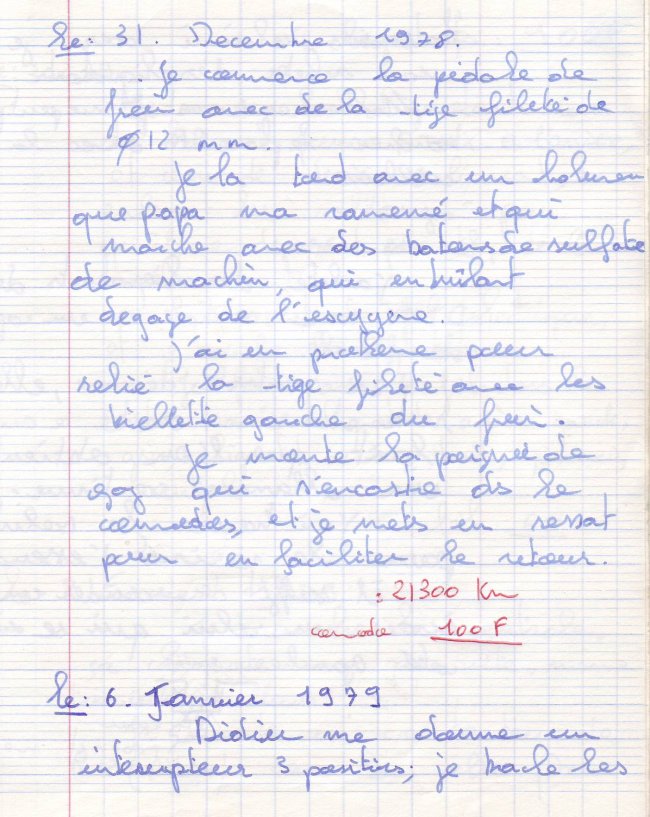 le: 31. Decembre 1978.
. je commence la pédale de
frein avec de la tige fileté de
ø 12 mm.
je la tord avec un
que papa ma ramené et qui
marche avec des batons de sulfate
de machin, qui en brûlant
degage de l'
j'ai un probleme pour
relié la tige fileté avec les
biellette gauche du frein.
je monte la poignée de
gaz qui s'encastre ds le
et je mets un ressort
pour en faciliter le retour.
: 21300 Km
100 F
le: 6. Janvier 1979
Didier me donne un
interrupteur 3 positions; je les